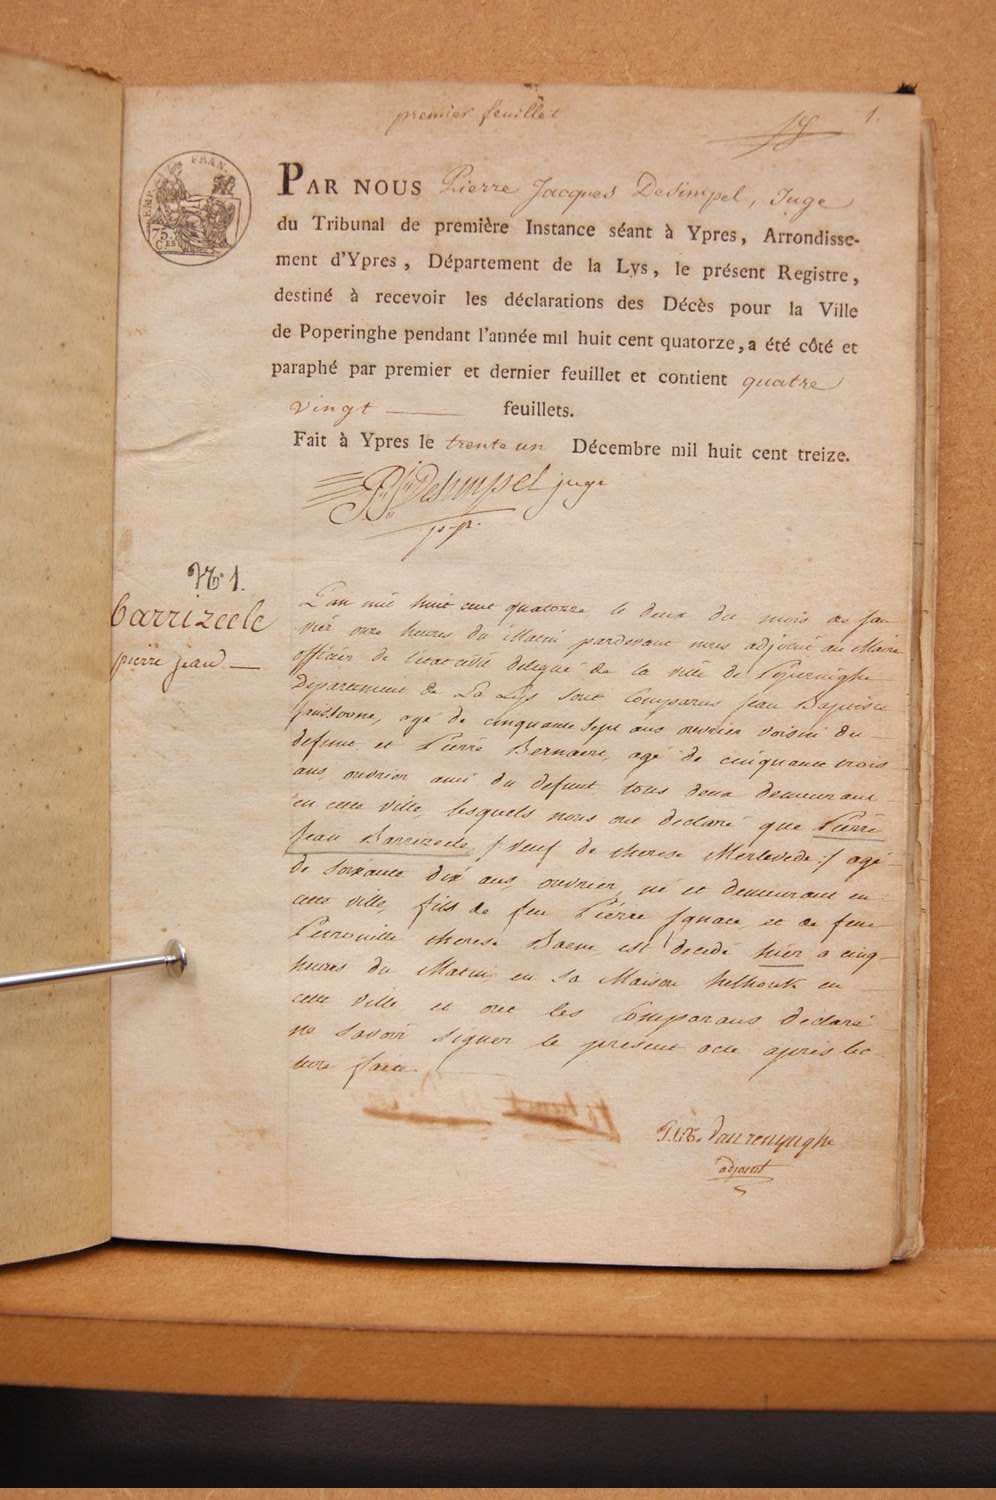 premier feuillet
1.
EMP. FRAN.
75 Ces
PAR NOUS Pierre Jacques Desimpel, Juge
du Tribunal de première Instance séant à Ypres, Arrondisse-
ment d'Ypres, Département de la Lys, le présent Registre,
destiné à recevoir les déclarations des Décès pour la Ville
de Poperinghe pendant l'année mil huit cent quatorze, a été côté et
paraphé par premier et dernier feuillet et contient quatre
vingt feuillets.
Fait à Ypres le trente un Décembre mil huit cent treize.
Desimpel juge
No 1.
Barrizeele
pierre jean
L'an mil huit cent quatorze le deux du mois de Jan
vier onze heures du Matin pardevant nous adjoint au Maire
officier de l'état civil delegué de la ville de Poperinghe
Département de La Lys sont Comparus Jean Baptiste
agé de cinquante sept ans ouvrier voisin du
defunt et Pierre Bernaert, agé de cinquante trois
ans ouvrier ami du defunt tous deux demeurant
en cette ville, lesquels nous ont declaré que Pierre
Jean Barrizeele /: veuf de therese Merlevede :/ agé
de soixante dix ans, ouvrier, né et demeurant en
cette ville, fils de feu Pierre Ignace et de feue
Petronille therese Baeme est decedé hier a cinq
heures du Matin, en sa Maison helhoek en
cette ville et ont les Comparans declaré
ne savoir signer le présent acte après lec
ture faite
Vanrenynghe
adjoint